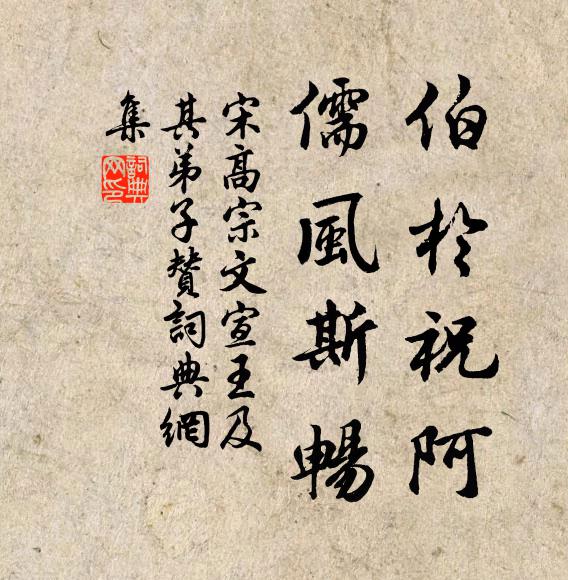 伯於祝阿
儒風斯暢
宋高宗文宣王及
其弟子贊詞典網
集
詞典网印